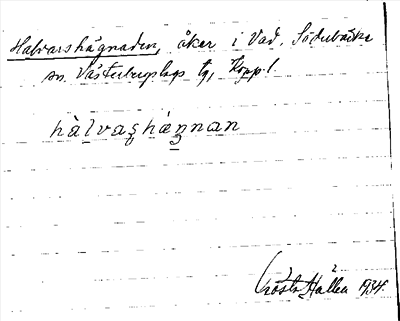 Halvarshägnaden, åker i Vad, Söderbärke
sn. Västerbergslags tg, Kopp. l.
hàlvaʂhæŋnan
Gösta Hallén 1934.